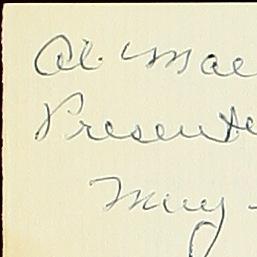 Al. Mac
Presente
May -